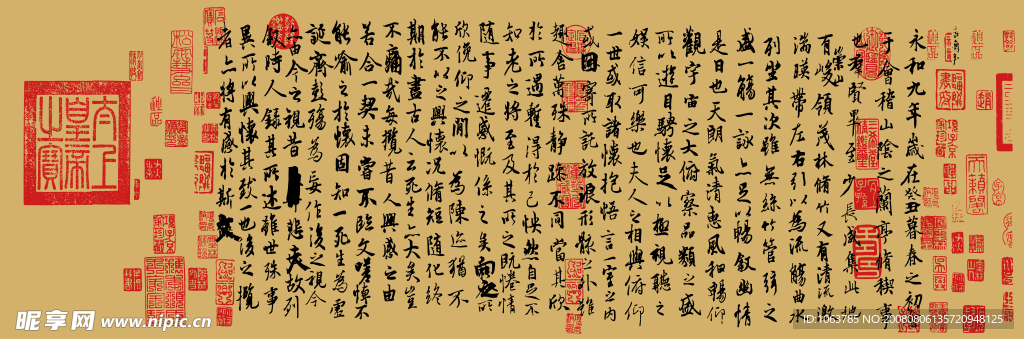 永和九年歲在癸丑暮春之初會
于會稽山陰之蘭亭脩稧事
也羣賢畢至少長咸集此地
有崇山峻領茂林脩竹又有清流激
湍暎帶左右引以為流觴曲水
列坐其次雖無絲竹管弦之
盛一觴一詠亦足以暢叙幽情
是日也天朗氣清惠風和暢仰
觀宇宙之大俯察品類之盛
所以遊目騁懷足以極視聽之
娛信可樂也夫人之相與俯仰
一世或取諸懷抱悟言一室之內
或因寄所託放浪形骸之外雖
趣舍萬殊静躁不同當其欣
於所遇蹔得於己怏然自足不
知老之將至及其所之既惓情
隨事遷感慨係之矣向之所
欣俛仰之閒以為陳迹猶不
能不以之興懷況脩短隨化終
期於盡古人云死生亦大矣豈
不痛哉每攬昔人興感之由
若合一契未嘗不臨文嗟悼不
能喻之於懷固知一死生為虛
誕齊彭殤為妄作後之視今
亦由今之視昔悲夫故列
叙時人錄其所述雖世殊事
異所以興懷其致一也後之攬
者亦將有感於斯文
太上皇帝之寶
昵享网 www.nipic.cn
ID:1063785 NO:20080806135720948125